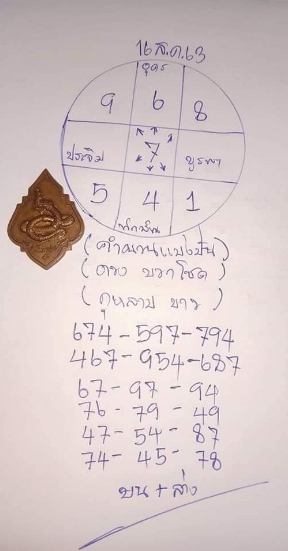 16 ส.ค. 63
อุดร
9 6 8
ประจิม 7 บูรพา
5 4 1
ทักษิณ
(คำนวนแม่งปัน)
(ตรง บวกโชค)
(กุหลาบ ขาว)
674-597-794
467-954-687
67-97-94
76-79-49
47-54-87
74-45-78
บน + ล่าง